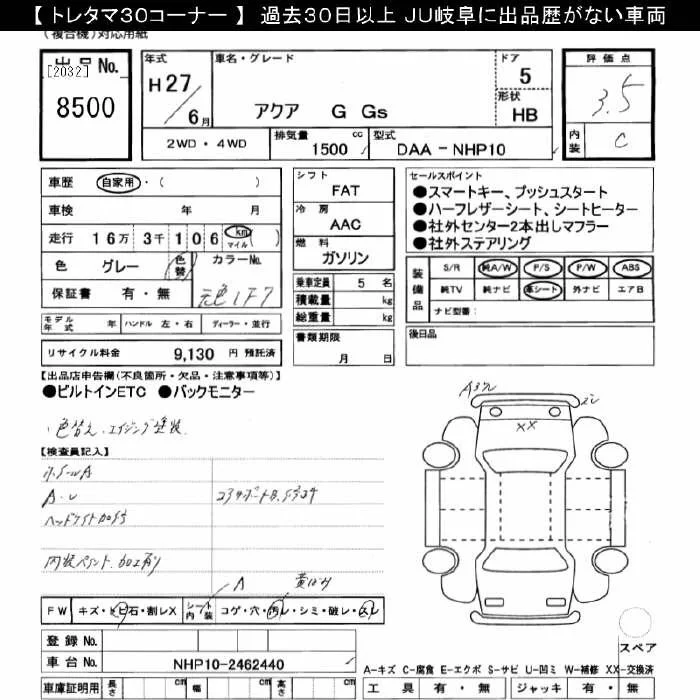 【 トレタマ30コーナー 】 過去30日以上 JU岐阜に出品歴がない車両
(複合機)対応用紙
出品No.
[2032]
8500
年式
H27/6月
車名・グレード
アクア G Gs
ドア
5
形状
HB
評価点
3.5
内装
C
2WD・4WD
排気量
1500 cc
型式
DAA-NHP10
車歴 自家用・( )
車検 年 月
走行 16万 3千106 km マイル ( )
色 グレー 色替 カラーNo.
元色1F7
保証書 有・無
シフト
FAT
冷房
AAC
燃料
ガソリン
乗車定員 5 名
積載量 kg
総重量 kg
書類期限
月 日
セールスポイント
●スマートキー、プッシュスタート
●ハーフレザーシート、シートヒーター
●社外センター2本出しマフラー
●社外ステアリング
装備品
S/R 純A/W P/S P/W ABS
純TV 純ナビ 革シート 外ナビ エアB
ナビ型番:
後日品
モデル年式 年 ハンドル 左・右 ディーラー・並行
リサイクル料金 9,130 円 預託済
【出品店申告欄(不良箇所・欠品・注意事項等)】
●ビルトインETC ●バックモニター
・色替え、エイジング塗装
【検査員記入】
ホイールA
A・U
ヘッドライト加工
内装ペイント、加工有り
A 黄ばみ
FW キズ・ヒビ石・割レX シート内装 コゲ・穴・汚レ・シミ・破レ・スレ
登録No.
車台No. NHP10-2462440
車庫証明用 長さ cm 幅 cm 高さ cm
XX
スペア
A-キズ C-腐食 E-エクボ S-サビ U-凹ミ W-補修 X-交換 XX-交換済
工具 有・無 ジャッキ 有・無